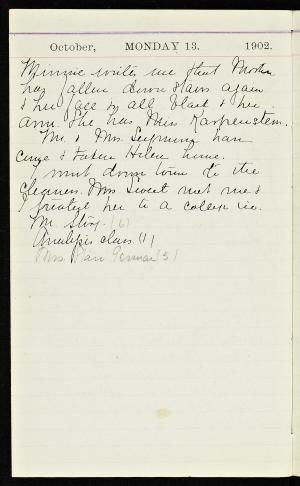 October, MONDAY 13. 1902.
Minnie writes me that Mother
has fallen down stairs again
& her face is all black & her
arm. She has Miss Karpenstein.
Mr. & Mrs. have
come & taken Helen home.
I went down town to the
cleaners. Mrs Sweet met me &
I treated her to a college ice.
Mr. (6)
Analysis class (1)
Mrs. German (5)